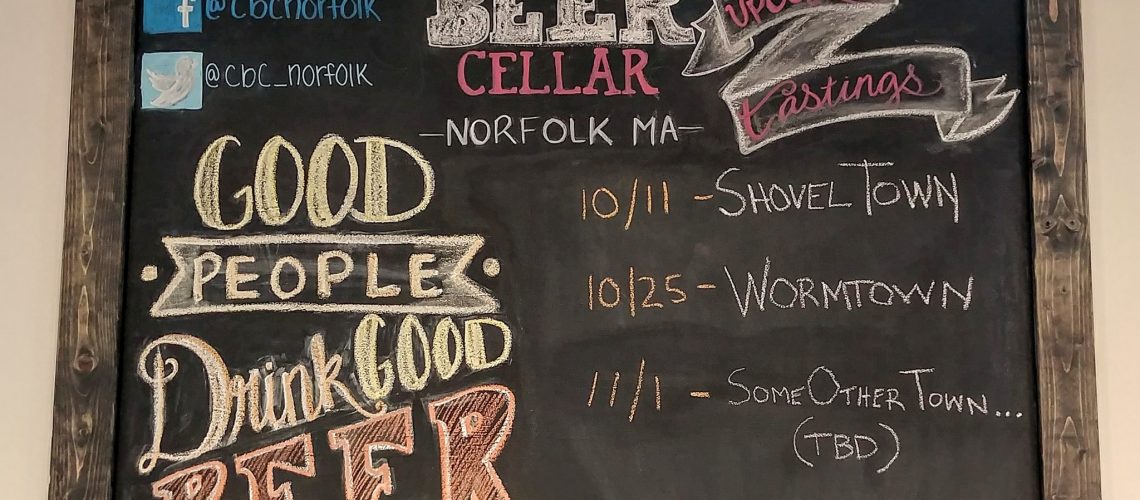 @cbcnorfolk
@cbc_norfolk
BEER
CELLAR
-NORFOLK MA-
UPCOMING
Tastings
GOOD
PEOPLE
Drink GOOD
BEER
10/11 - SHOVEL TOWN
10/25 - WORMTOWN
11/1 - SOME OTHER TOWN...
(TBD)